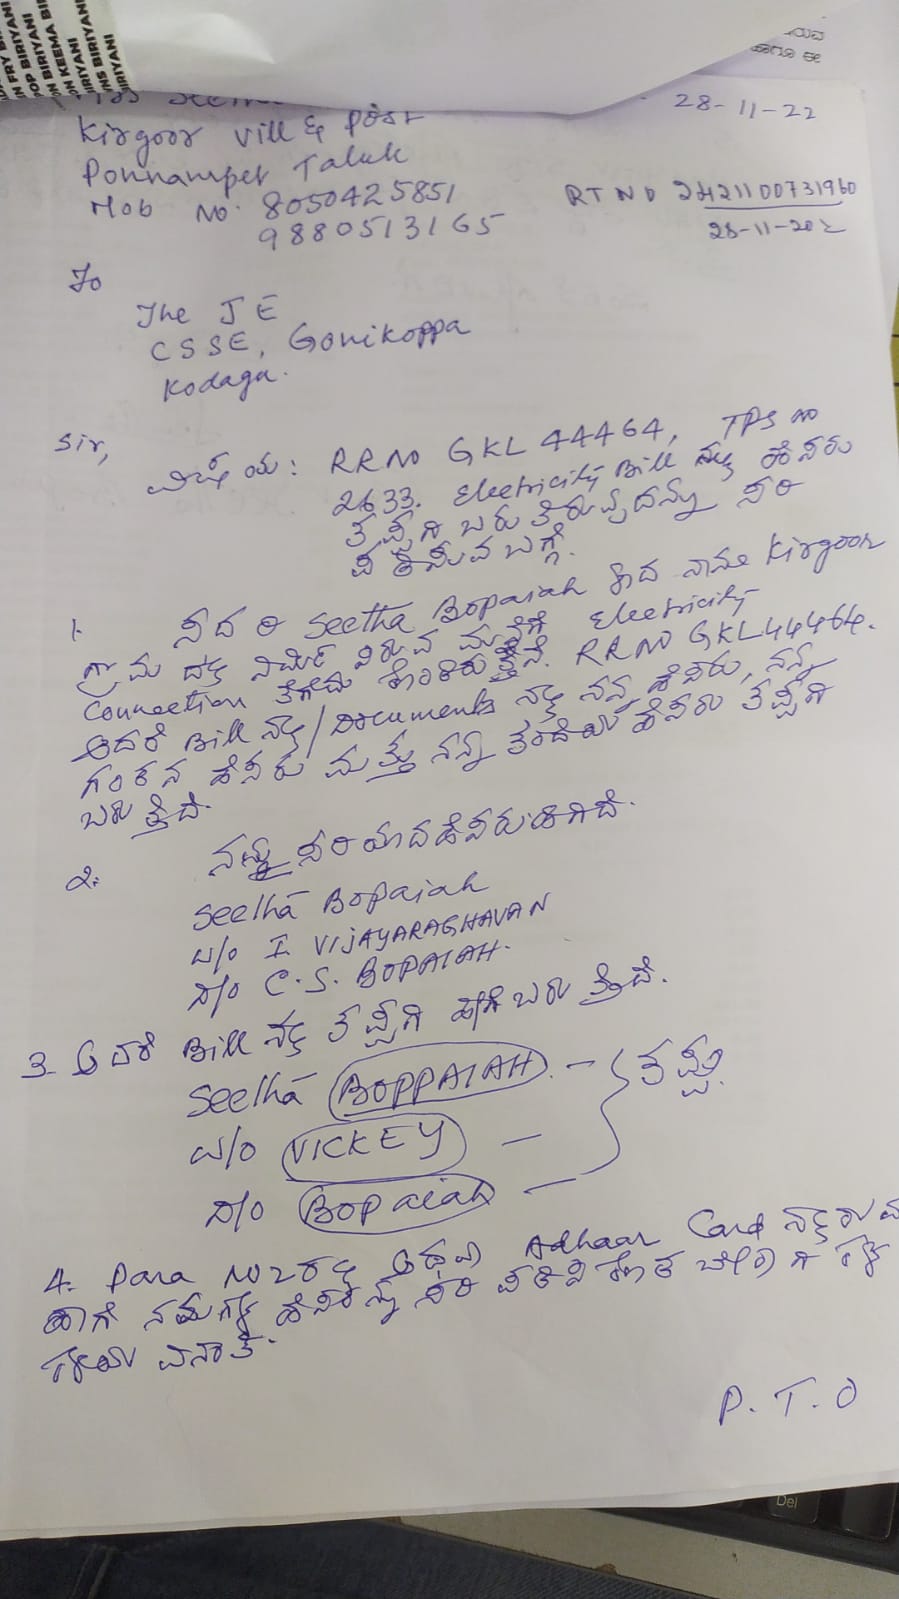 FRY BI
N FRY BIRIYANI
POP BIRIYANI
ON BIRIYANI
ON KEEMA BIR
ON KEEN
BIRIYANI
BIRIYANI
28-11-22
Kirgoor Vill & Post
Ponnampet Taluk
Mob No. 8050425851
9880513165
RT NO 2421100731960
28-11-202
To
The JE
CSSE, Gonikoppa
Kodagu.
Sir,
ವಿಷಯ: RRNO GKL 44464, TPS NO
2633. Electricity Bill ನಲ್ಲಿ ಹೆಸರು
ತಪ್ಪಾಗಿ ಬರುತ್ತಿರುವುದನ್ನು ಸರಿ
ಪಡಿಸುವ ಬಗ್ಗೆ.
1. ಸದರಿ Seetha Bopaiah ಆದ ನಾನು Kirgoor
ಗ್ರಾಮದಲ್ಲಿ ನಿರ್ಮಿಸಿರುವ ಮನೆಗೆ Electricity
Connection ತೆಗೆದುಕೊಂಡಿರುತ್ತೇನೆ. RRNO GKL44464.
ಆದರೆ Bill ನಲ್ಲಿ/Documents ನಲ್ಲಿ ನನ್ನ ಹೆಸರು, ನನ್ನ
ಗಂಡನ ಹೆಸರು ಮತ್ತು ನನ್ನ ತಂದೆಯ ಹೆಸರು ತಪ್ಪಾಗಿ
ಬರುತ್ತಿದೆ.
2. ನನ್ನ ಸರಿಯಾದ ಹೆಸರು ಹೀಗಿದೆ.
Seetha Bopaiah
W/o I. VIJAYARAGHAVAN
D/o C.S. BOPAIAH.
3. ಆದರೆ Bill ನಲ್ಲಿ ತಪ್ಪಾಗಿ ಹೀಗೆ ಬರುತ್ತಿದೆ.
Seetha BOPPAIAH - ತಪ್ಪು.
W/o VICKEY -
D/o Bopaiah -
4. Para NO 2 ರಲ್ಲಿ ಅಥವಾ Adhaar Card ನಲ್ಲಿರುವ
ಹಾಗೆ ನಮ್ಮ ಹೆಸರನ್ನು ಸರಿಪಡಿಸಿ ಕೊಡ ಬೇಕಾಗಿ
ವಿನಂತಿ.
P. T. O
Del